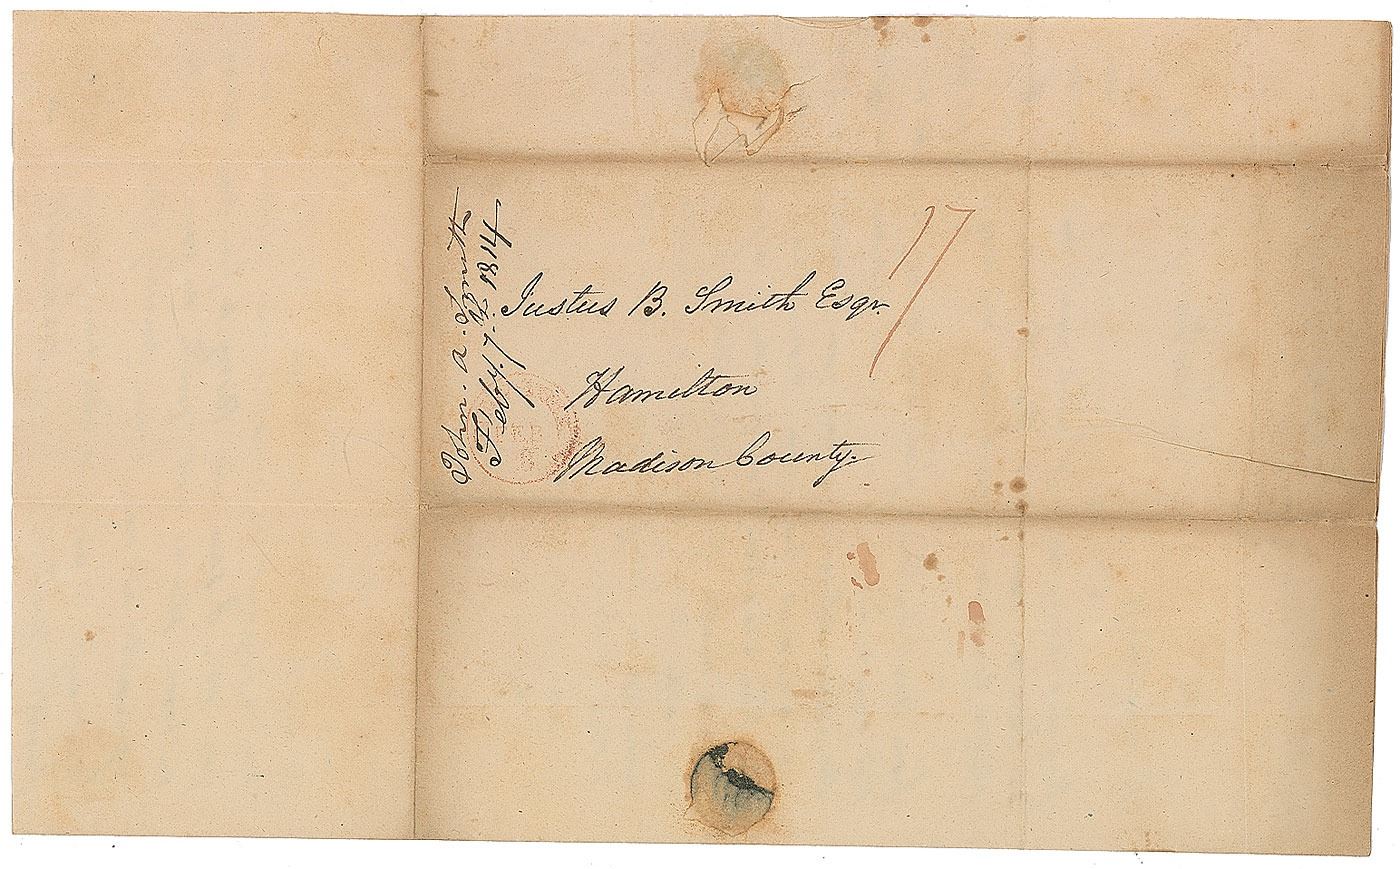 John. A. Smith
Feby. 7. 1814
17
Justus B. Smith Esqr.
Hamilton
Madison County.